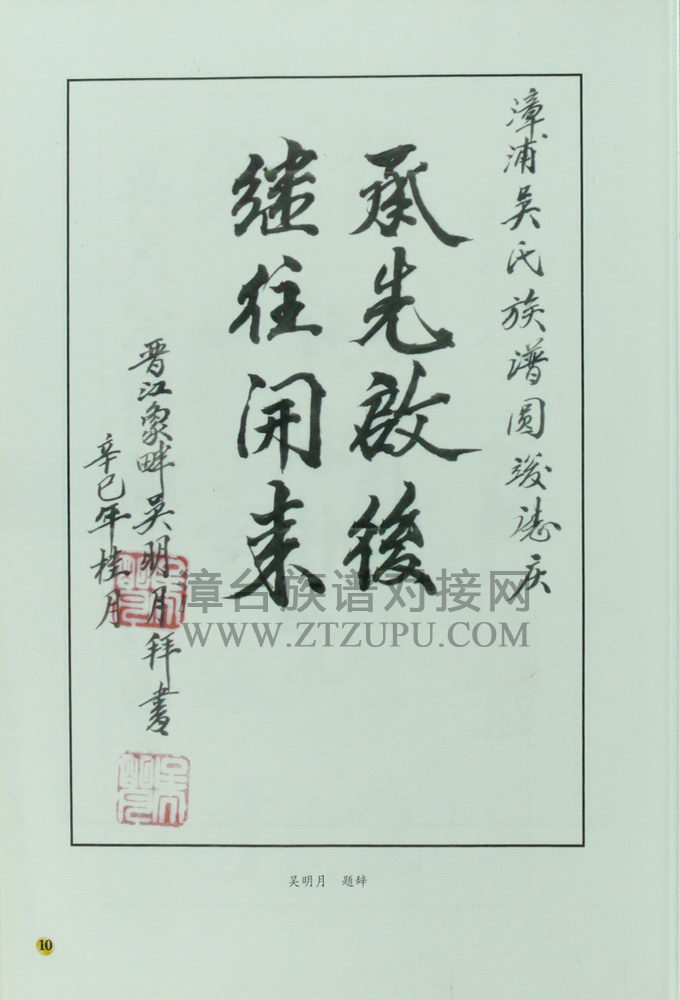 漳浦吴氏族谱圆竣誌庆
承先啟後
继往开来
晋江象畔吴明月拜書
辛巳年桂月
漳台族谱对接网
WWW.ZTZUPU.COM
吴明月 题辞
10